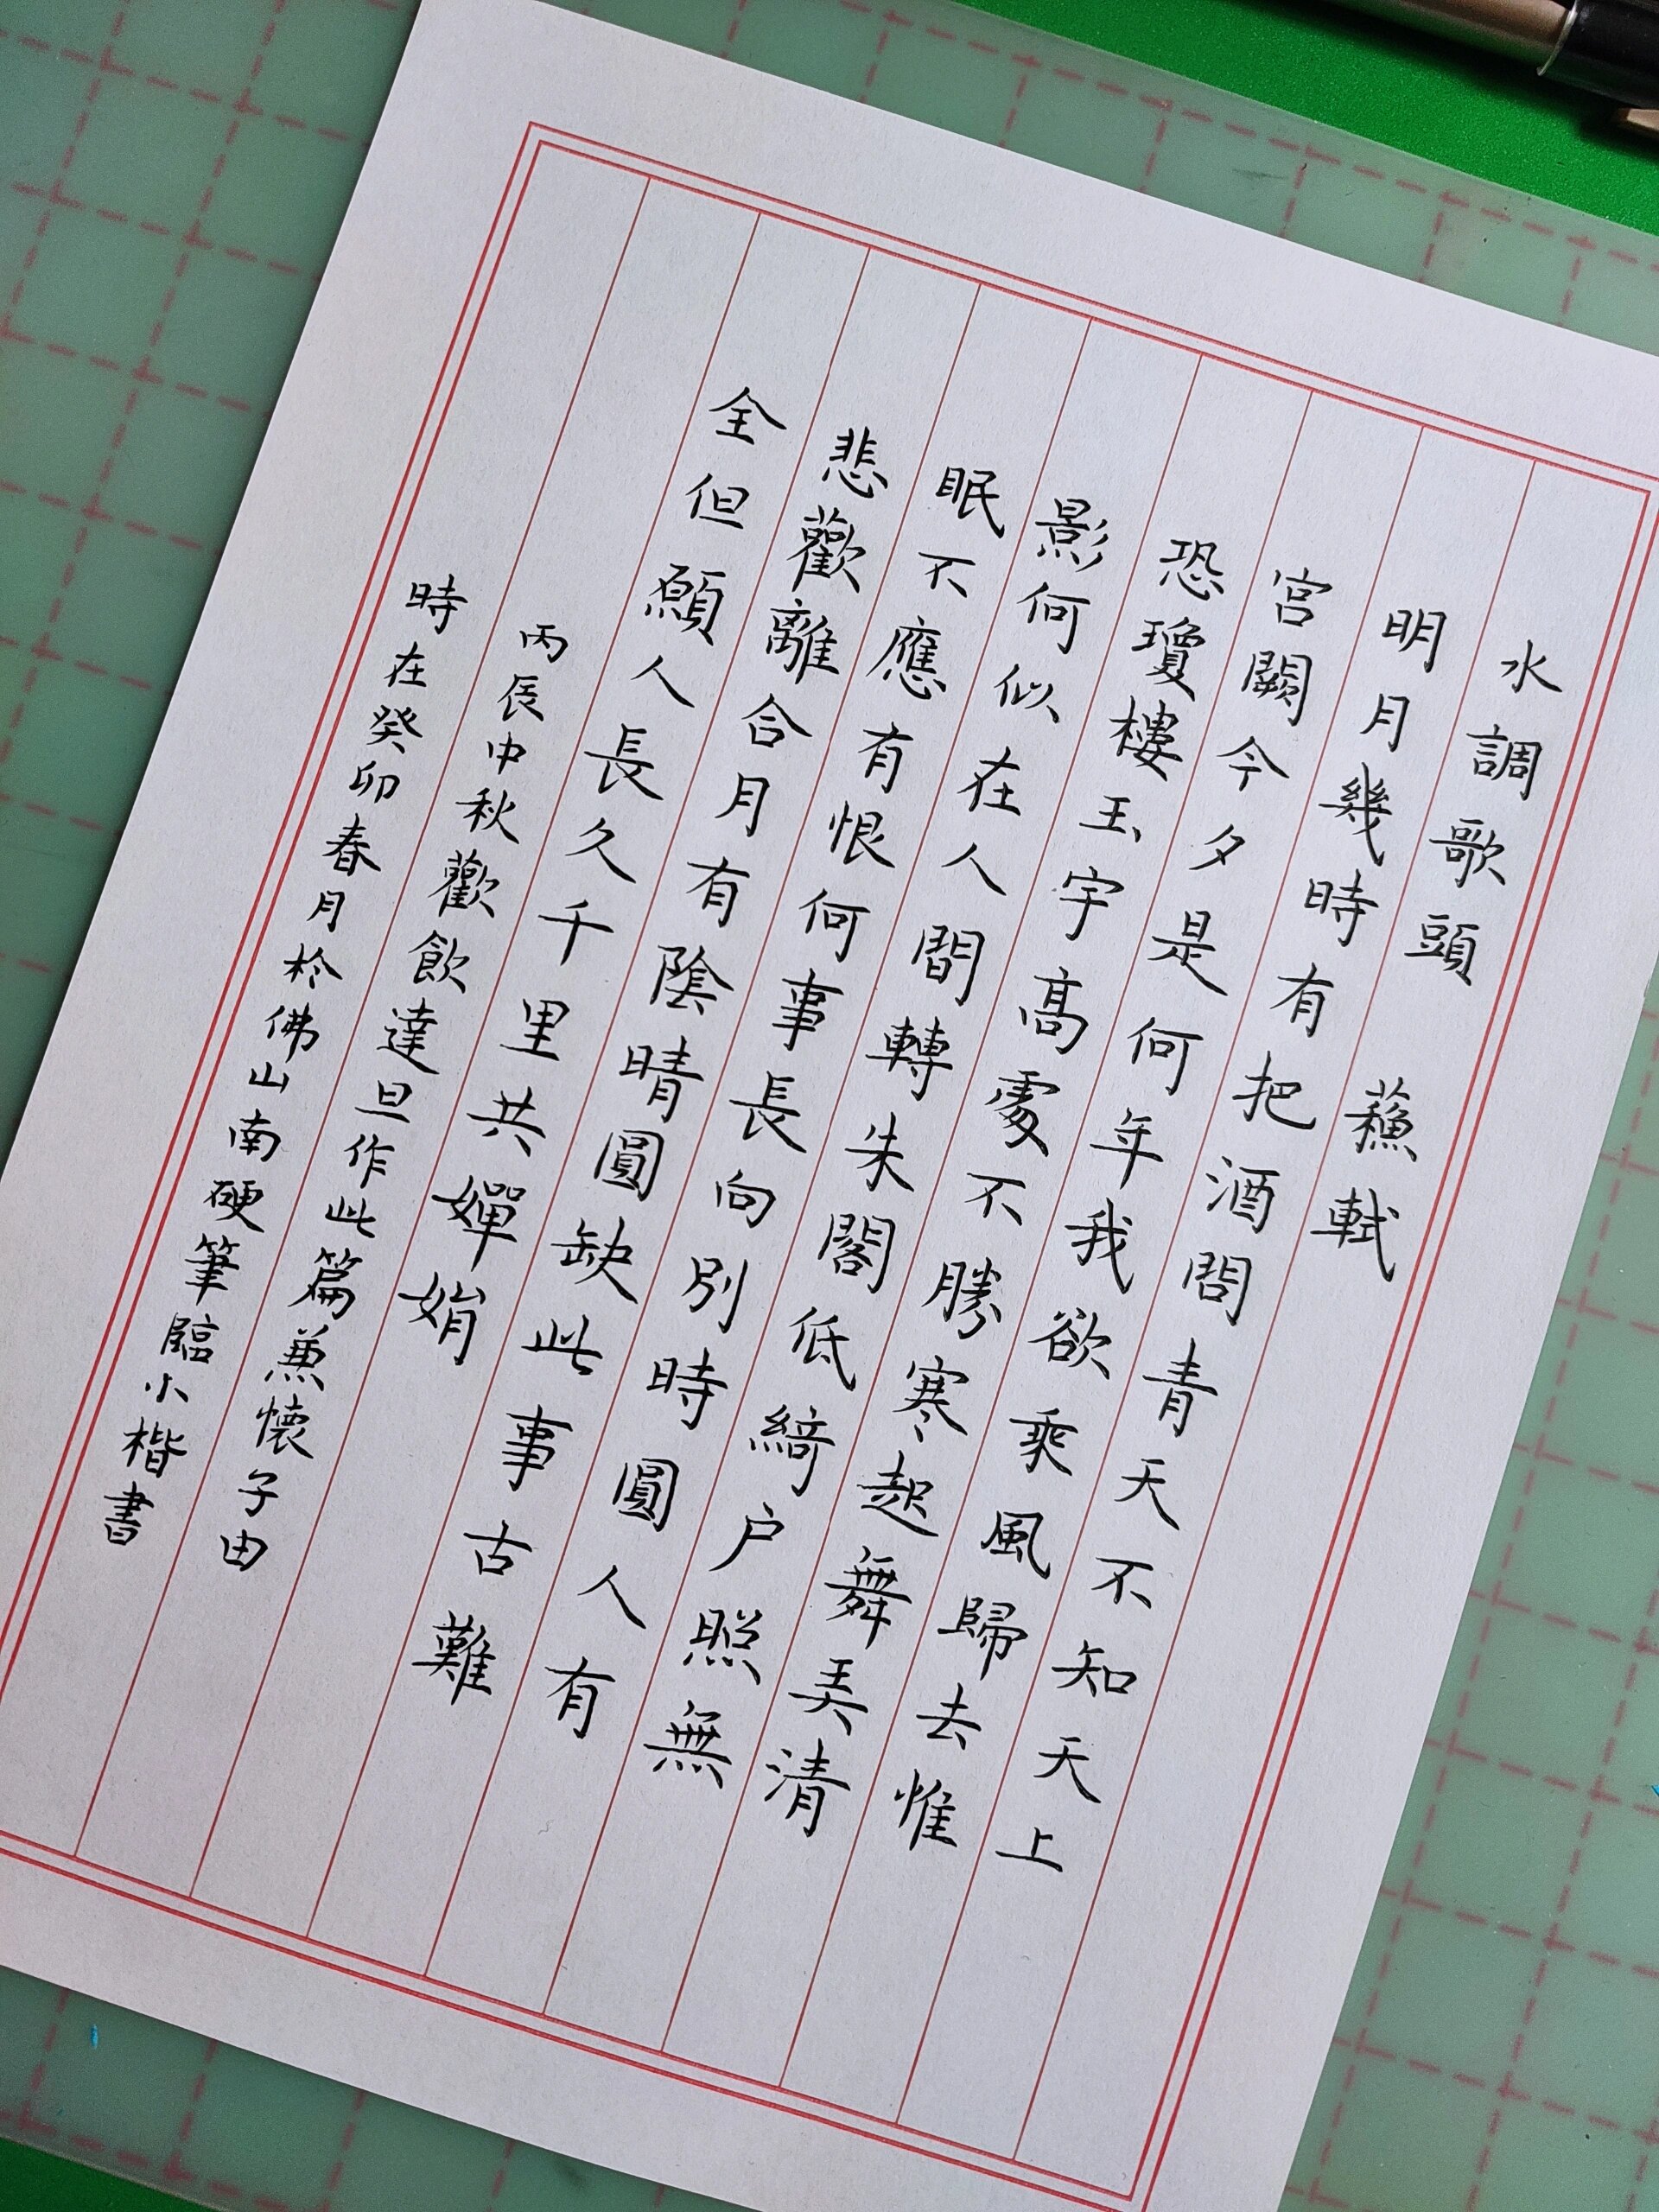 水調歌頭 蘓軾
明月幾時有把酒問青天不知天上
宮闕今夕是何年我欲乘風歸去惟
恐瓊樓玉宇髙處不勝寒起舞弄清
影何似在人間轉朱閣低綺户照無
眠不應有恨何事長向別時圓人有
悲歡離合月有陰晴圓缺此事古難
全但願人長久千里共嬋娟
丙辰中秋歡飲達旦作此篇兼懷子由
時在癸卯春月於佛山南硬筆臨小楷書